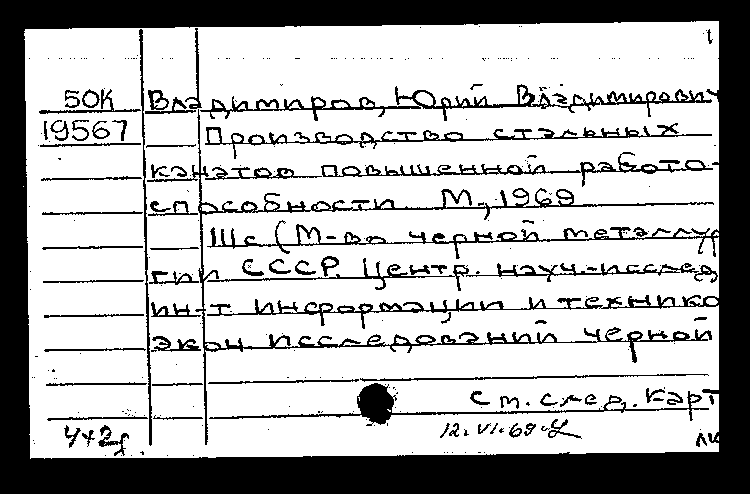 1
50К Владимиров, Юрий Владимирович
19567 Производство стальных
канатов повышенной работо-
способности М., 1969
111с (М-во черной металлур
гии СССР. Центр. науч.-исслед.
ин-т информации и технико
экон. исследований черной
См. след. карт
4х2д. 12.VI.69